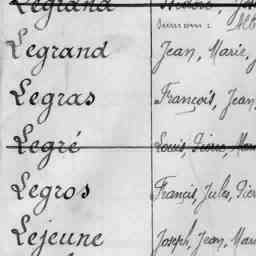 Legrand
surnom:
Legrand Jean, Marie,
Legras François, Jean
Legré Louis, Pierre,
Legros Francis, Jules, Pier
Lejeune Joseph, Jean, Mari